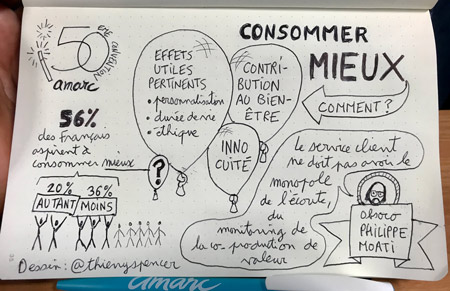 50
EME
CONVENTION
amarc
CONSOMMER
MIEUX
COMMENT?
EFFETS
UTILES
PERTINENTS
• personnalisation
• durée de vie
• éthique
CONTRI-
BUTION
AU BIEN-
ÊTRE
INNO
CUITÉ
?
56%
des Français
aspirent à
consommer mieux
20% 36%
AUTANT MOINS
Le service client
ne doit pas avoir le
monopole
de l'écoute,
du
monitoring de
la co-production de
valeur
Obsoco
PHILIPPE
MOATI
Dessin: @thierryspencer
amarc